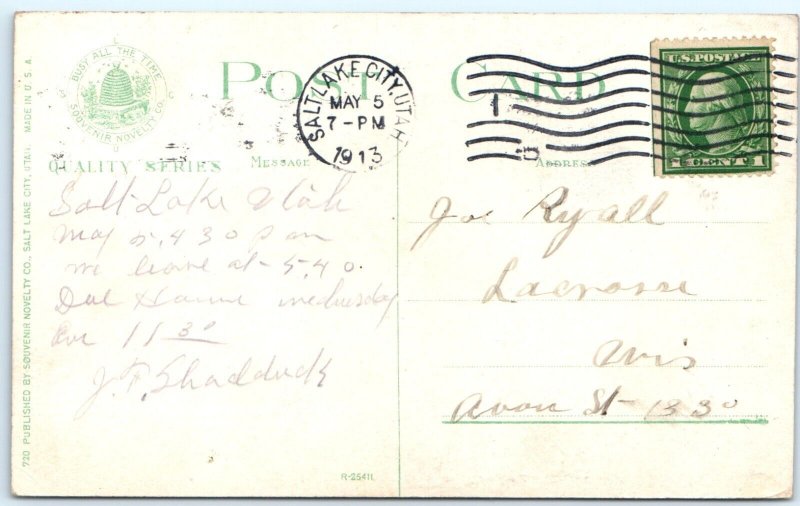 BUSY ALL THE TIME
SOUVENIR NOVELTY CO.
POST CARD
SALT LAKE CITY, UTAH
MAY 5
7-PM
1913
1
U.S. POSTAGE
1 CENT 1
QUALITY SERIES
MESSAGE
ADDRESS
Salt Lake Utah
May 5, 4 30 pm
we leave at 5,40.
Due Home wednesday
Eve 11 30
J.F. Shadduck
Joe Ryall
Lacrosse
Wis
Avon St 1330
R-25411
720 PUBLISHED BY SOUVENIR NOVELTY CO., SALT LAKE CITY, UTAH. MADE IN U.S.A.